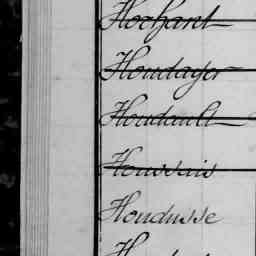 Hochart
Houdayer
Houdault
Houssais
Houdusse